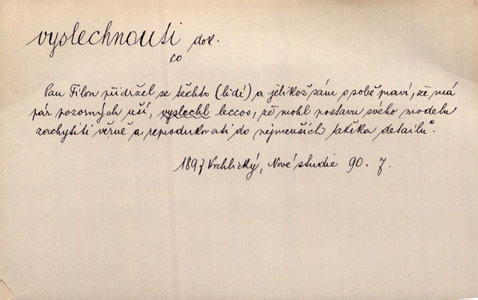 vyslechnouti dok.
co
Pan Filon přidržel se těchto (lidí) a jelikož sám o sobě praví, že má
pár pozorných uší, vyslechl leccos, že mohl postavu svého modelu
zachytiti věrně a reprodukovati do nejmenších takřka detailů.
1897 Vrchlický, Nové studie 90. 7.